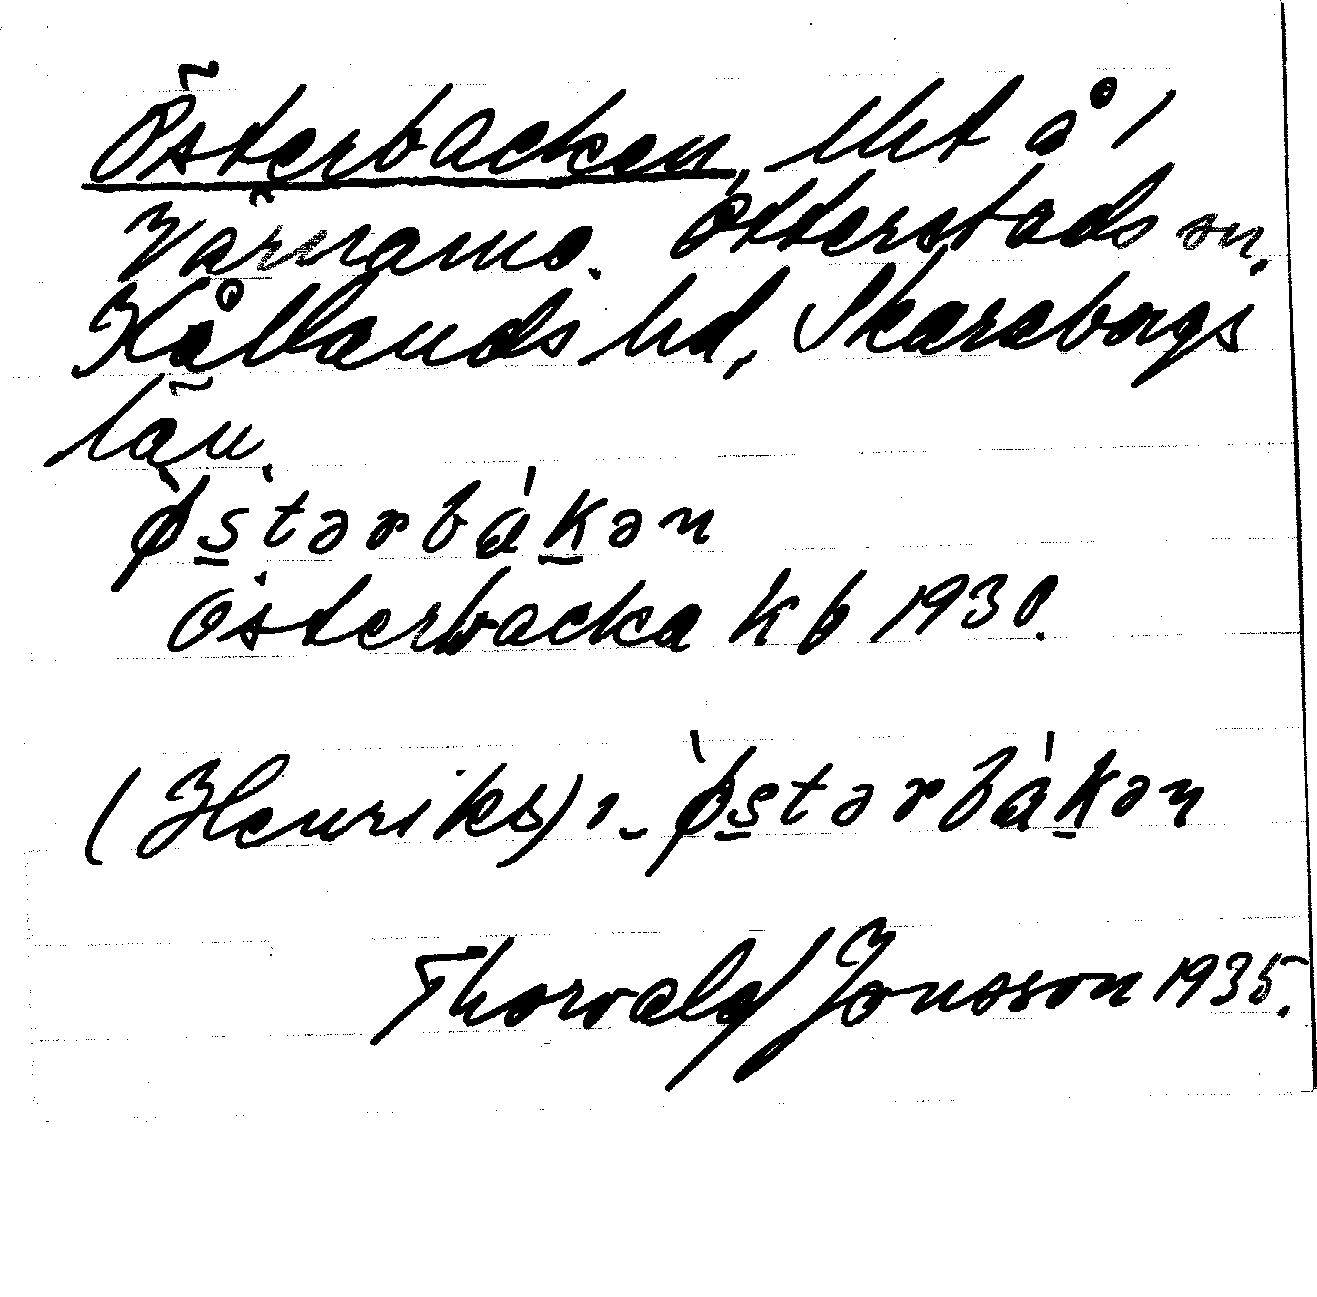 Österbacken, lht å 1
Värnamo. Otterstads sn,
Kållands hd, Skaraborgs
län.
ø̀s̲tərbák̲ən
Österbacka kb 1930.
(Henriks):- ø̀s̲tərbák̲ən
Thorvald Jonsson 1935.